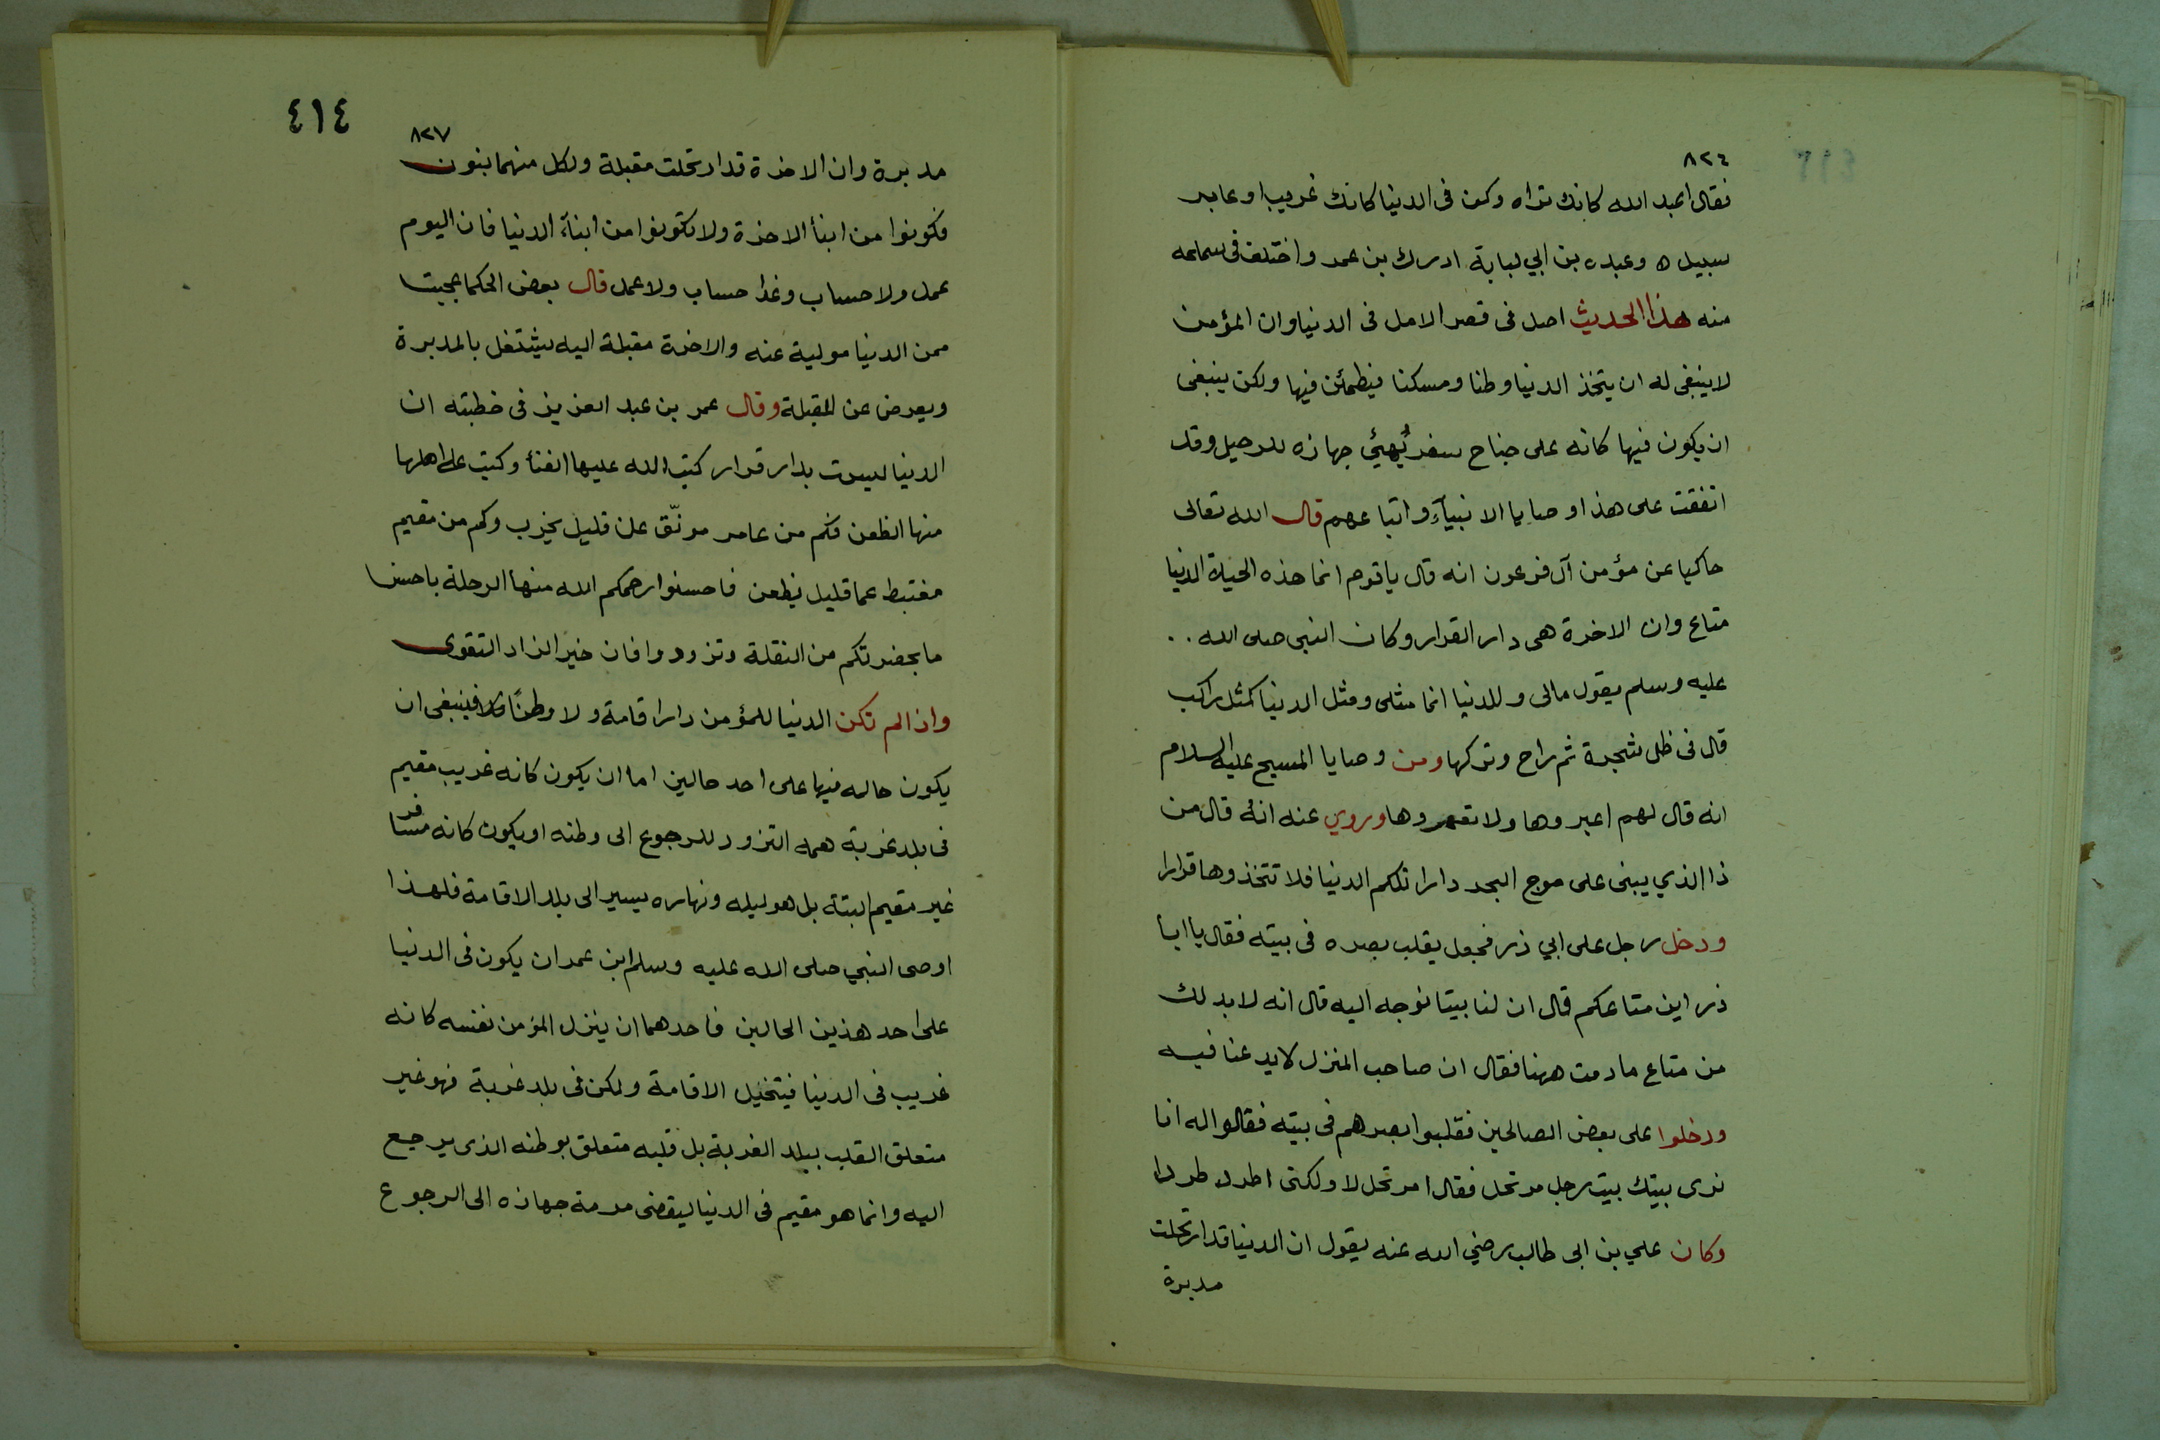 ٨٢٦
فقال اعبد الله كانك تراه وكن فى الدنيا كانك غريب او عابر
سبيل ه وعبده بن ابي لبابة ادرك بن عمر واختلف فى سماعه
منه هذا الحديث اصل فى قصر الامل فى الدنيا وان المؤمن
لا ينبغى له ان يتخذ الدنيا وطنا ومسكنا فيطمئن فيها ولكن ينبغى
ان يكون فيها كانه على جناح سفر يُهيّئ جهازه للرحيل وقد
اتفقت على هذا وصايا الانبيآء واتباعهم قال الله تعالى
حاكيا عن مؤمن آل فرعون انه قال ياقوم انما هذه الحياة الدنيا
متاع وان الاخرة هى دار القرار وكان النبى صلى الله . .
عليه وسلم يقول مالى وللدنيا انما مثلى ومثل الدنيا كمثل راكب
قال فى ظل شجرة ثم راح وتركها ومن وصايا المسيح عليه السلام
انه قال لهم اعبروها ولا تعمروها وروي عنه انه قال من
ذا الذي يبنى على موج البحر دارا تلكم الدنيا فلا تتخذوها قرارا
ودخل رجل على ابي ذر فجعل يقلب بصره فى بيته فقال يا ابا
ذر اين متاعكم قال ان لنا بيتا نوجه اليه قال انه لا بد لك
من متاع ما دمت ههنا فقال ان صاحب المنزل لا يدعنا فيه
ودخلوا على بعض الصالحين فقلبوا بصرهم فى بيته فقالوا له انا
نرى بيتك بيت رجل مرتحل فقال امرتحل لا ولكنى اطرد طردا
وكان علي بن ابى طالب رضي الله عنه يقول ان الدنيا قد ارتحلت
مدبرة
٤١٤
٨٢٧
مدبرة وان الاخرة قد ارتحلت مقبلة ولكل منهما بنون
فكونوا من ابنأ الاخرة ولا تكونوا من ابنآء الدنيا فان اليوم
عمل ولا حساب وغدا حساب ولا عمل قال بعض الحكما عجبت
ممن الدنيا مولية عنه والاخرة مقبلة اليه يشتغل بالمدبرة
ويعرض عن المقبلة وقال عمر بن عبد العزيز فى خطبته ان
الدنيا ليست بدار قرار كتب الله عليها الفنأ وكتب على اهلها
منها الظعن فكم من عامر مونّق عن قليل يخرب وكم من مقيم
مغتبط عما قليل يظعن فاحسنوا رحمكم الله منها الرحلة باحسن
ما بحضرتكم من النقلة وتزودوا فان خير الزاد التقوى
واذا لم تكن الدنيا للمؤمن دار اقامة ولا وطنًا فينبغى ان
يكون حاله فيها على احد حالين اما ان يكون كانه غريب مقيم
فى بلد غربة همه التزود للرجوع الى وطنه او يكون كانه مسافر
غير مقيم البتة بل هو ليله ونهاره يسير الى بلد الاقامة فلهذا
اوصى النبي صلى الله عليه وسلم ابن عمر ان يكون فى الدنيا
على احد هذين الحالين فاحدهما ان ينزل المؤمن نفسه كانه
غريب فى الدنيا فيتخيل الاقامة ولكن فى بلد غربة فهو غير
متعلق القلب ببلد الغربة بل قلبه متعلق بوطنه الذى يرجع
اليه وانما هو مقيم فى الدنيا ليقضى مرمة جهازه الى الرجوع